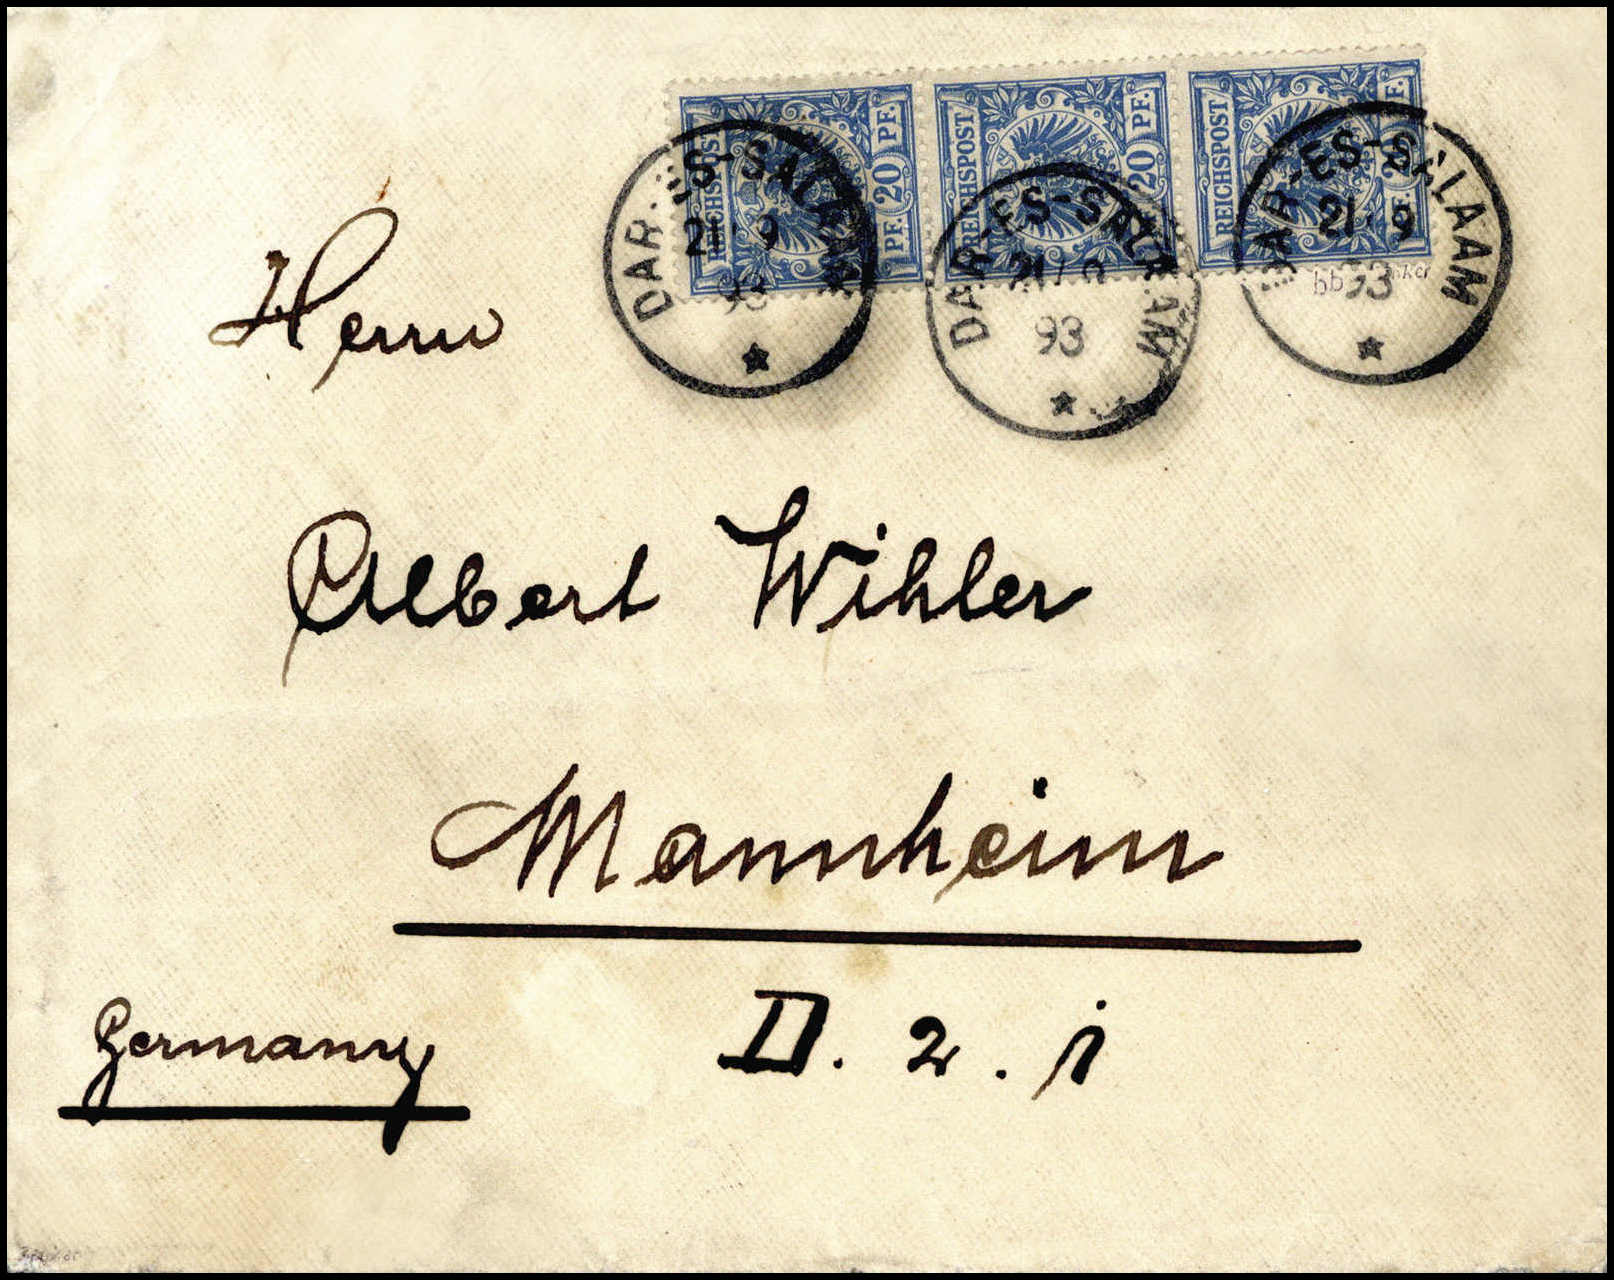 REICHSPOST 20 PF. PF.
REICHSPOST 20 PF.
REICHSPOST PF.
DAR-ES-SALAAM
21 9
93
DAR-ES-SALAAM
21
93
DAR-ES-SALAAM
21 9
93
Herrn
Albert Wihler
Mannheim
D. 2. 1
Germany